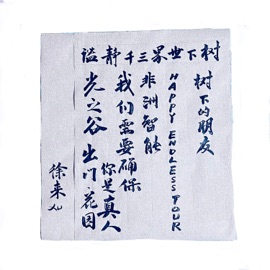 树下世界三千静谧
树下的朋友
HAPPY ENDLESS TOUR
非洲智能
我们需要确保
你是真人
光之谷 出门·花园
徐来